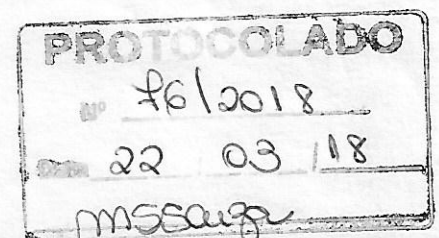 PROTOCOLADO
Nº 76/2018
Data 22 03/18
mssouza